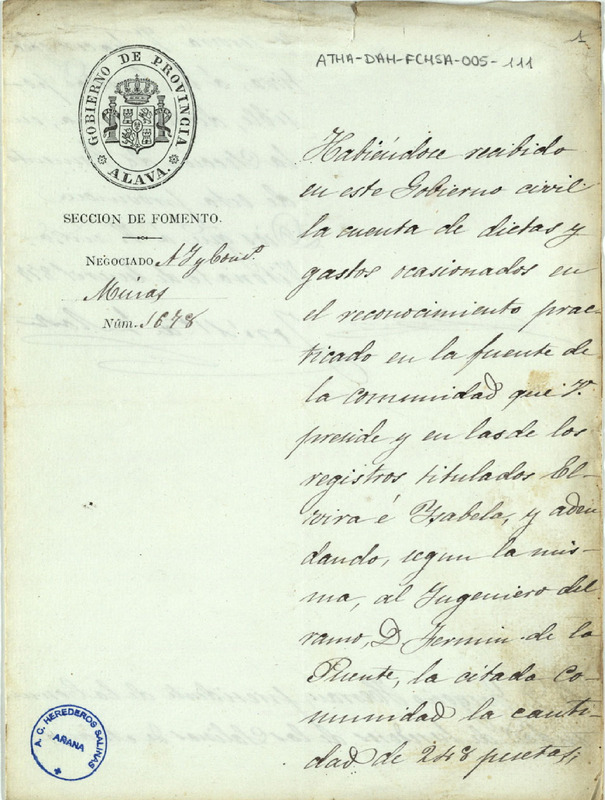 1
ATHA-DAH-FCHSA-005-111
GOBIERNO DE PROVINCIA
ALAVA.
SECCION DE FOMENTO.
NEGOCIADO
Minas
Núm. 1678
Habiéndose recibido
en este Gobierno civil
la cuenta de dietas y
gastos ocasionados en
el reconocimiento prac-
ticado en la fuente de
la comunidad que V.
preside y en las de los
registros titulados El-
vira é Ysabela, y adeu-
dando, segun la mis-
ma, al Ingeniero del
ramo, D. Fermin de la
Puente, la citada co-
munidad la canti-
dad de 248 pesetas,
A. C. HEREDEROS SALINAS
ARANA